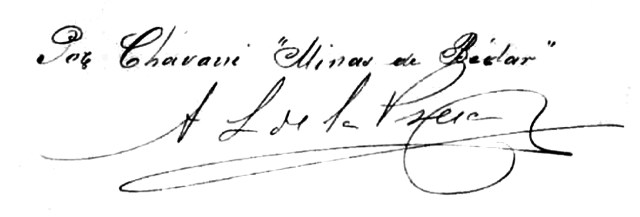 Por Chávarri "Minas de Bédar"
A L de la Presa